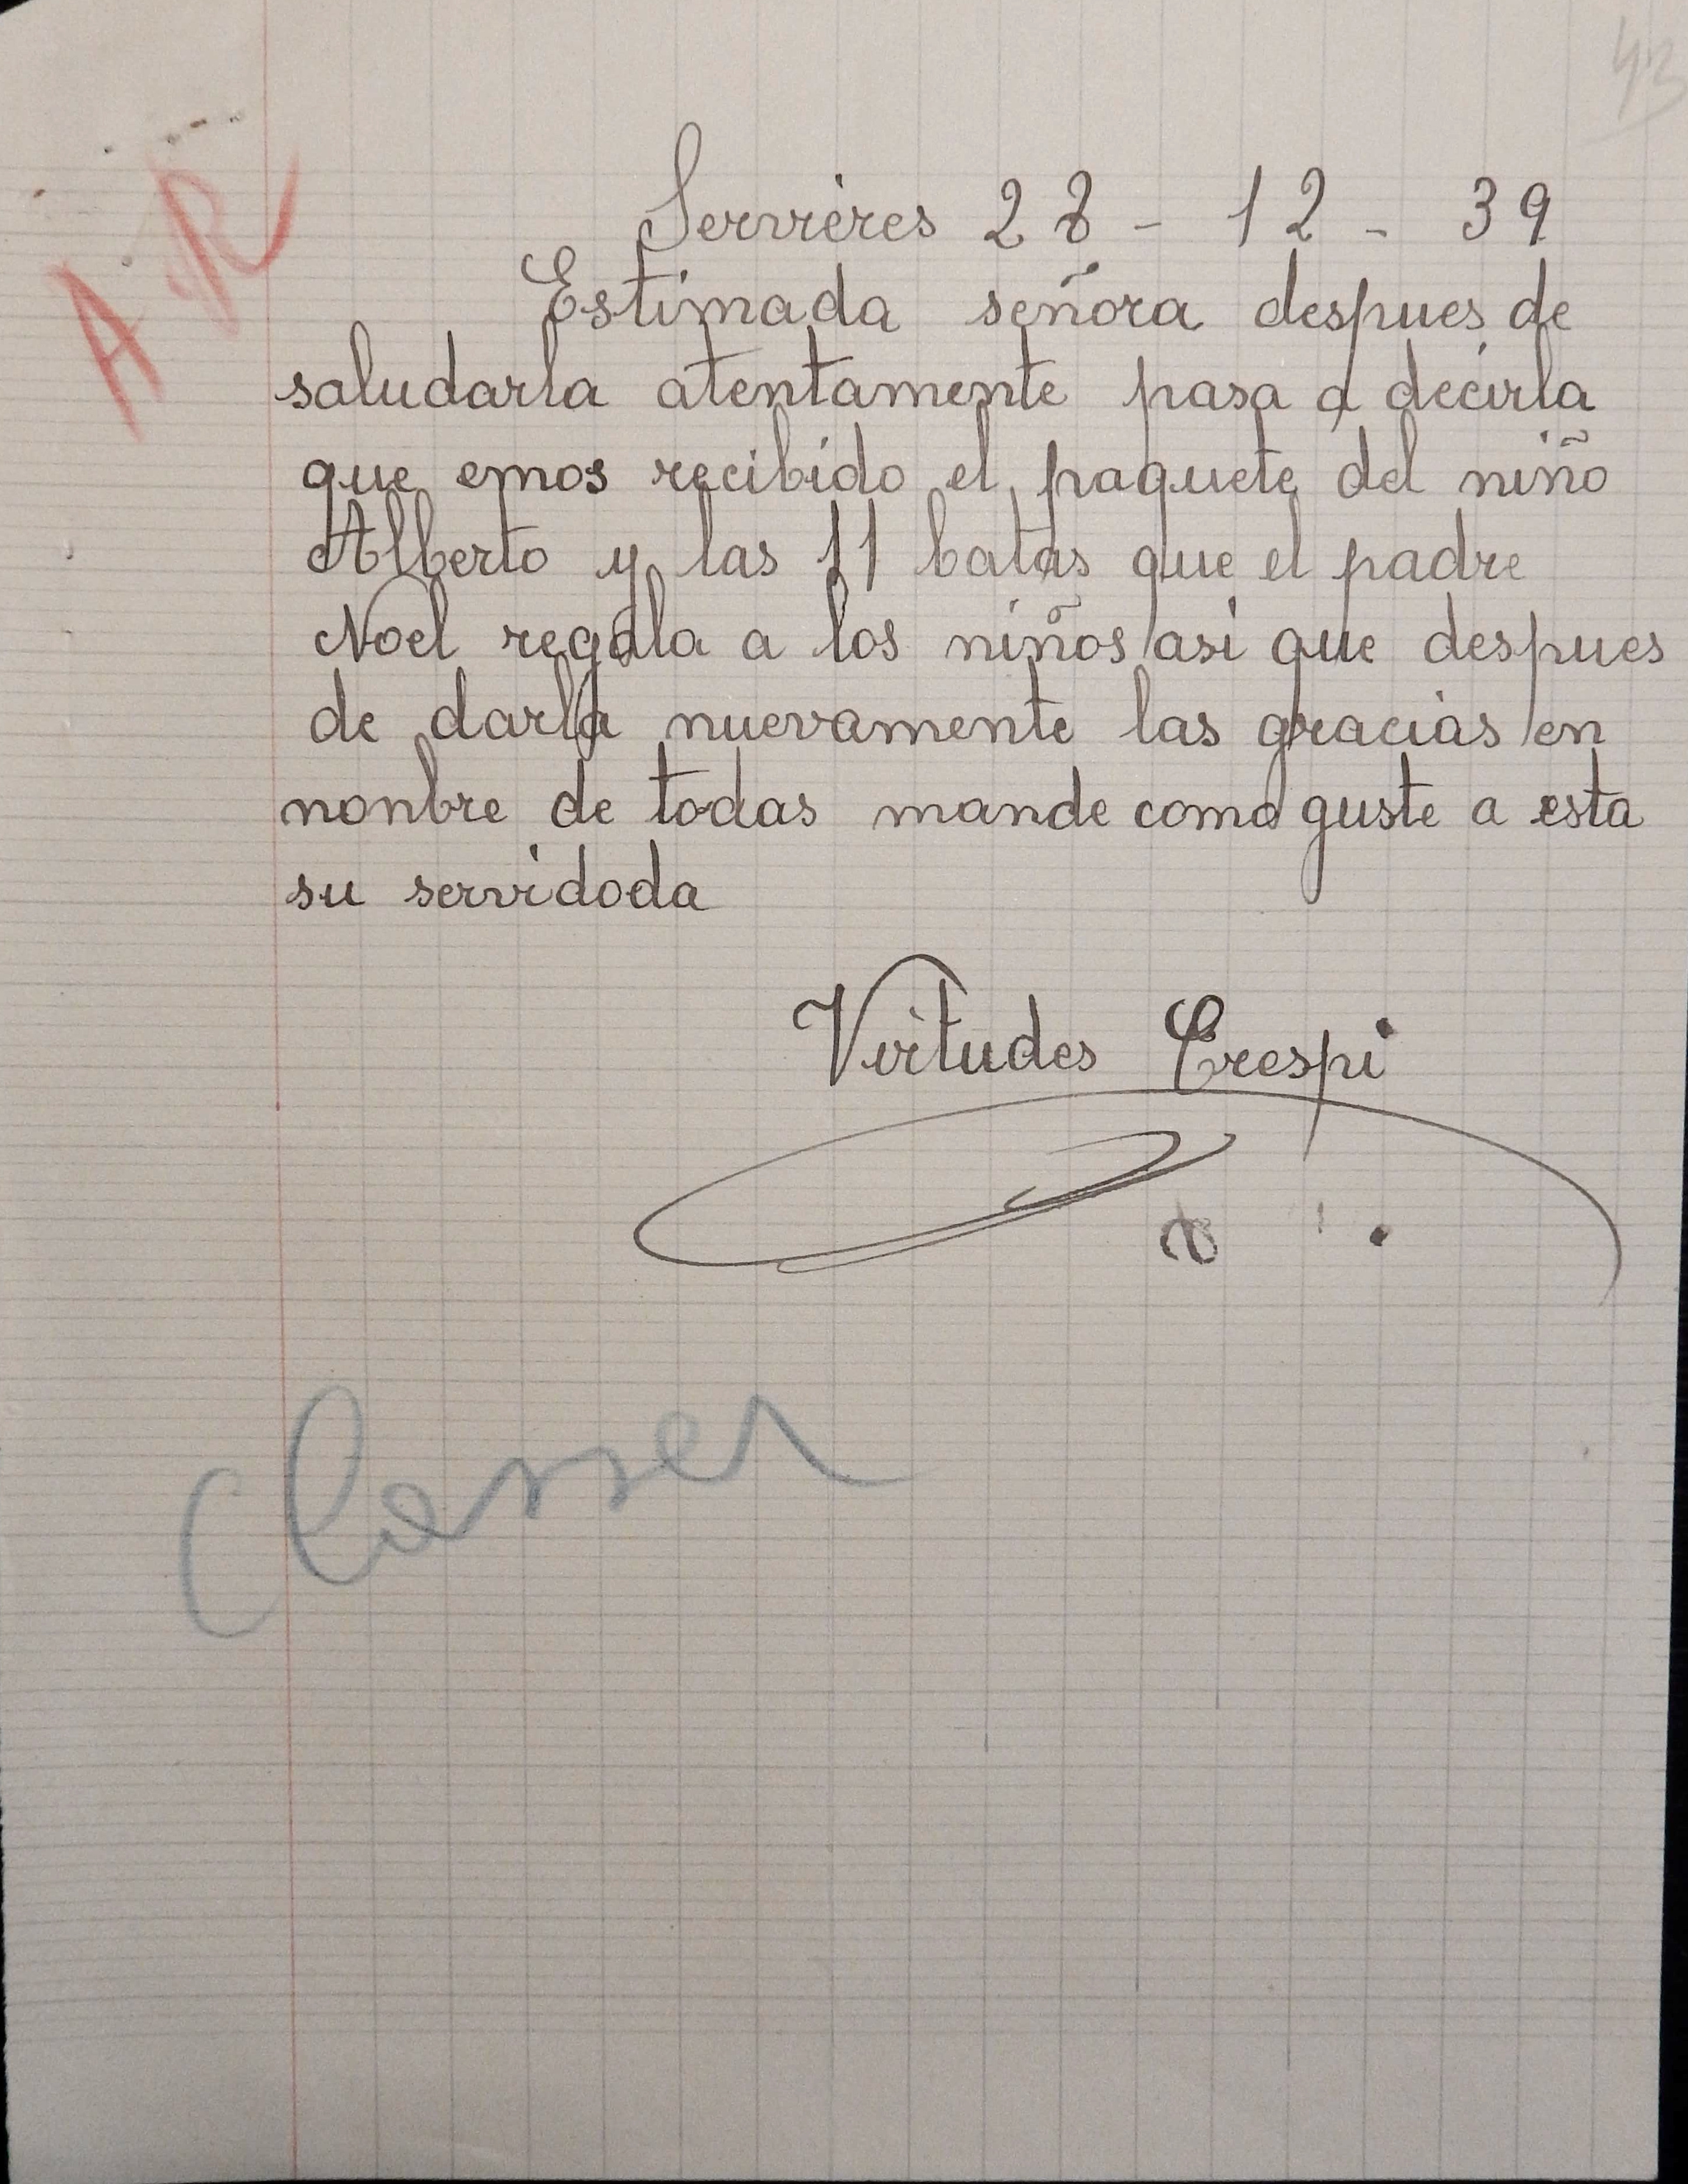 43
A R
Servières 28 - 12 - 39
Estimada señora despues de
saludarla atentamente pasa a decirla
que emos recibido el paquete del niño
Alberto y las 11 batas que el padre
Noel regala a los niños asi que despues
de darla nuevamente las gracias en
nonbre de todas mande como guste a esta
su servidoda
Virtudes Crespi
Classer